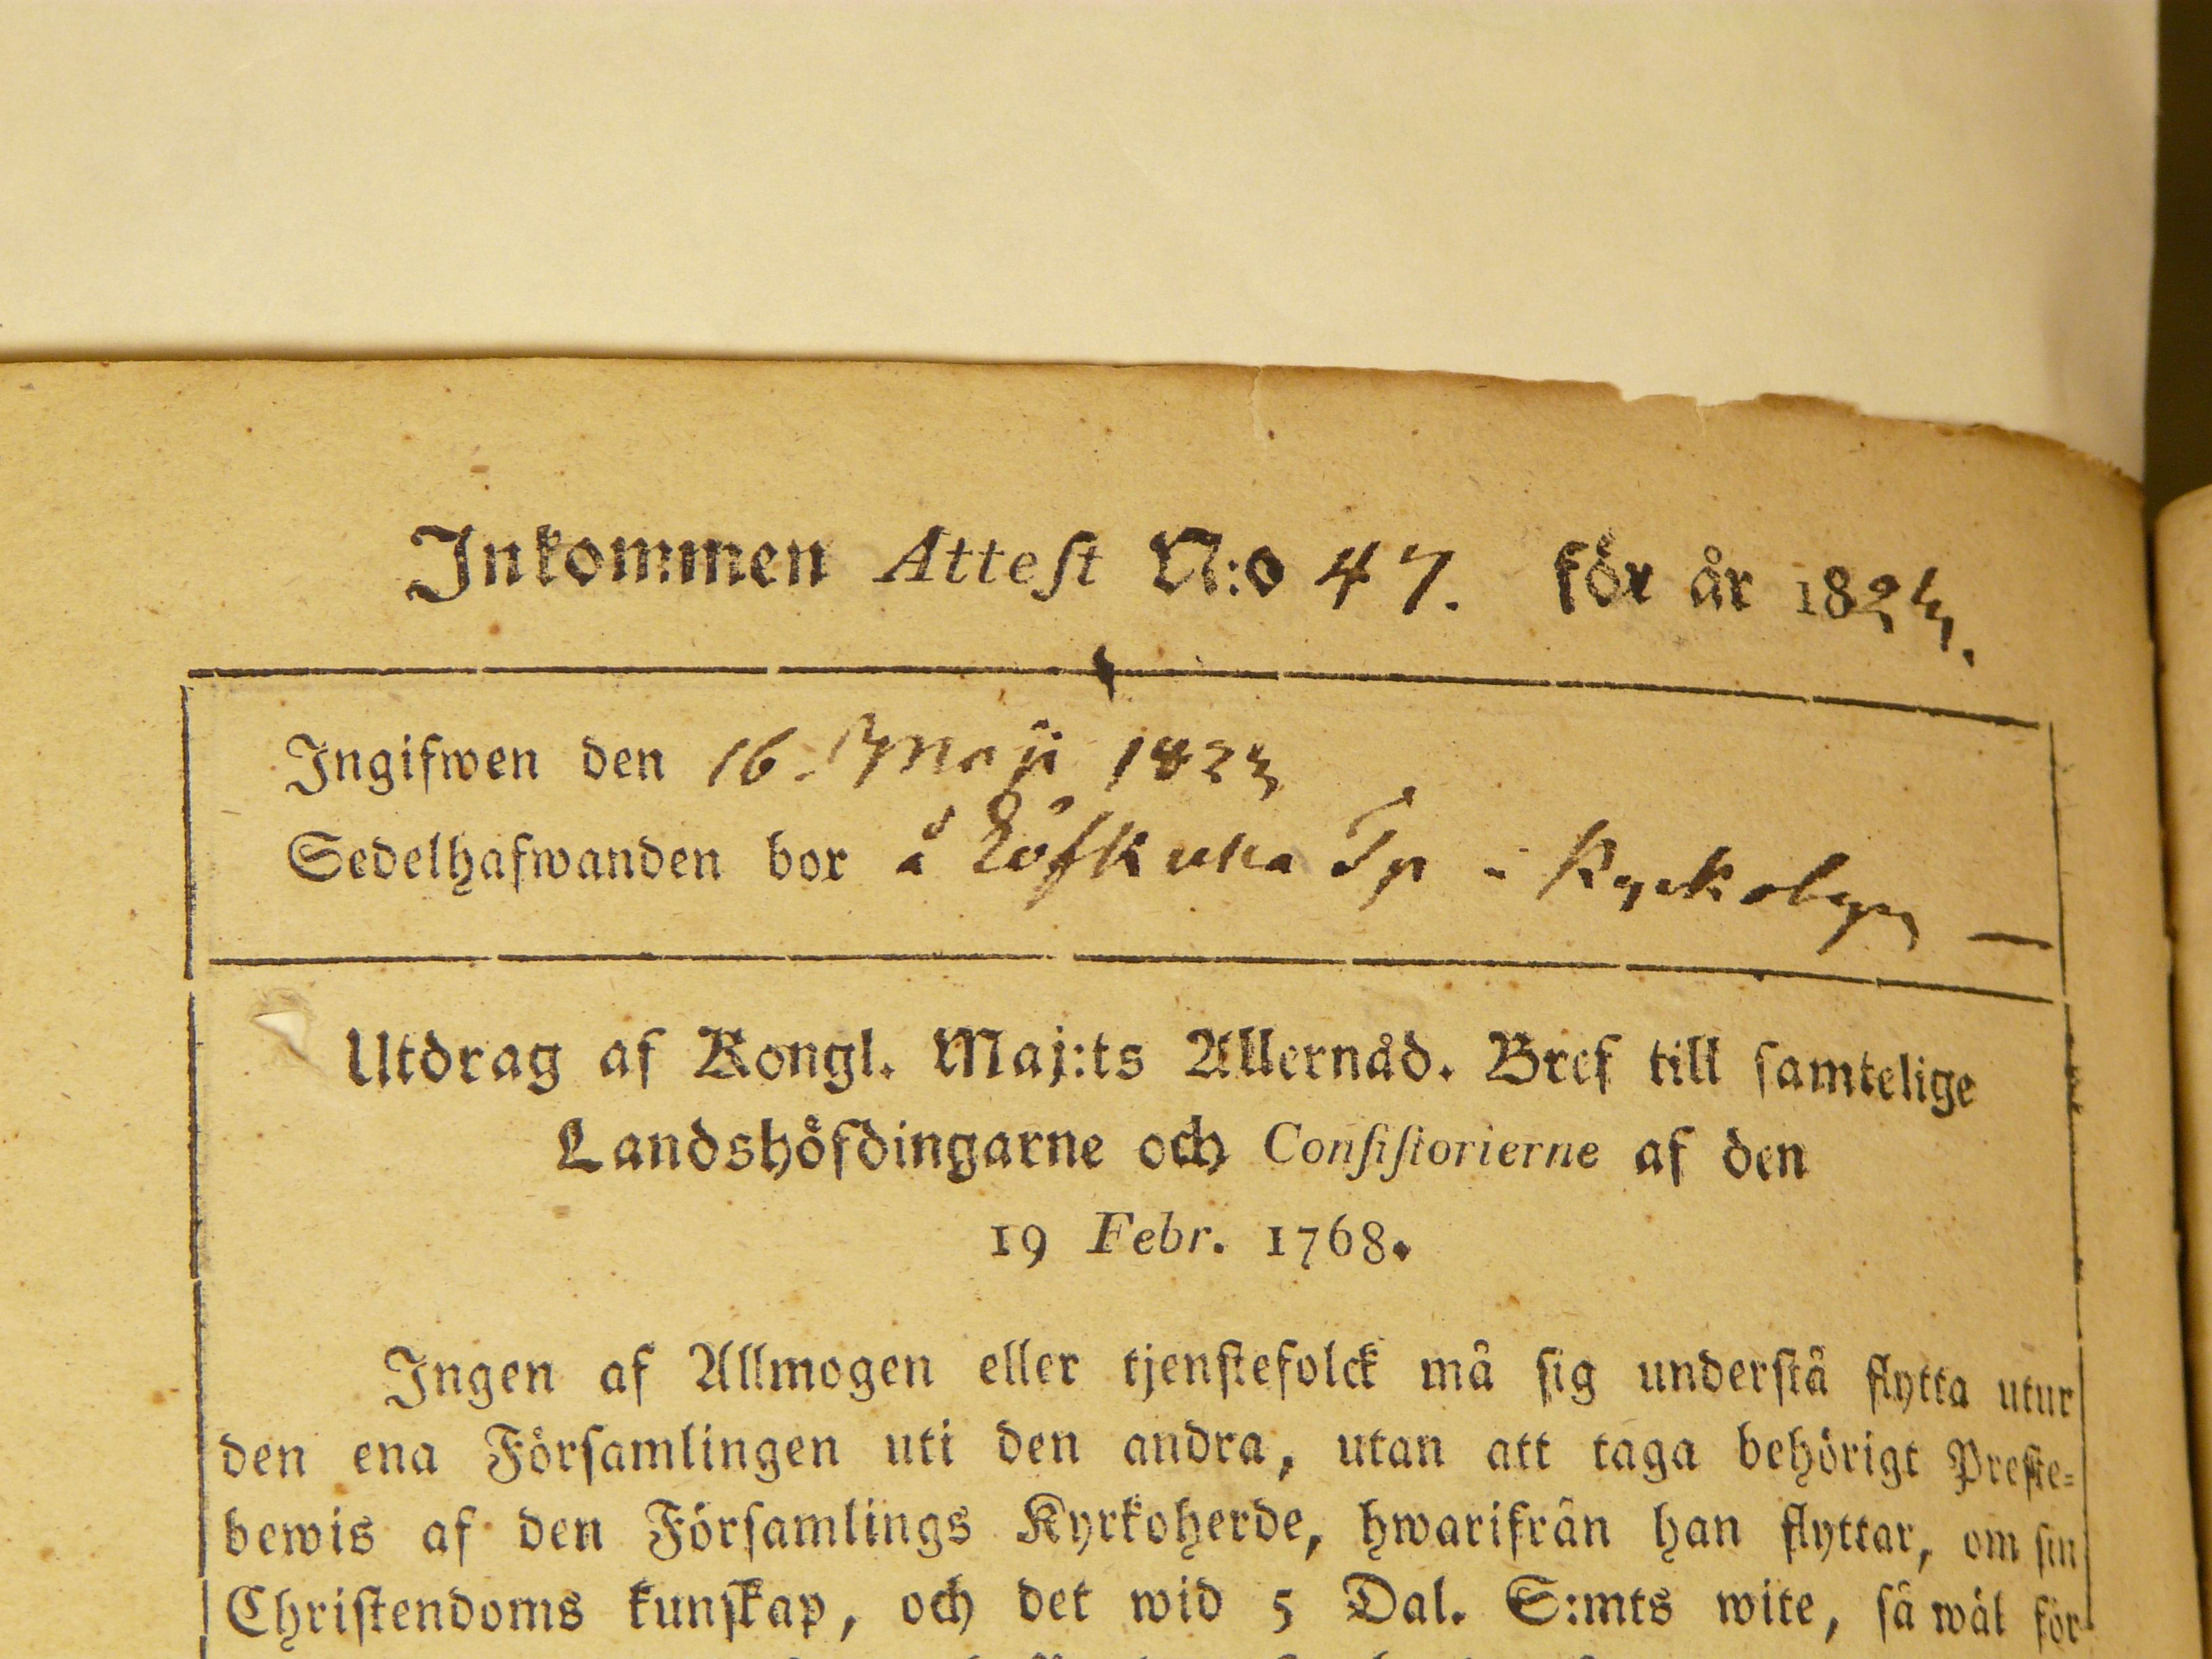 Inkommen Attest N:o 47. för år 1824.
Ingifwen den 16. Maji 1824
Sedelhafwanden bor å Löfkulla Tp i Kyrkobyn —
Utdrag af Kongl. Maj:ts Allernåd. Bref till samtelige
Landshöfdingarne och Consistorierne af den
19 Febr. 1768.
Ingen af Allmogen eller tjenstefolck må sig understå flytta utur
den ena Församlingen uti den andra, utan att taga behörigt Preste-
bewis af den Församlings Kyrkoherde, hwarifrån han flyttar, om sin
Christendoms kunskap, och det wid 5 Dal. S:mts wite, så wäl för